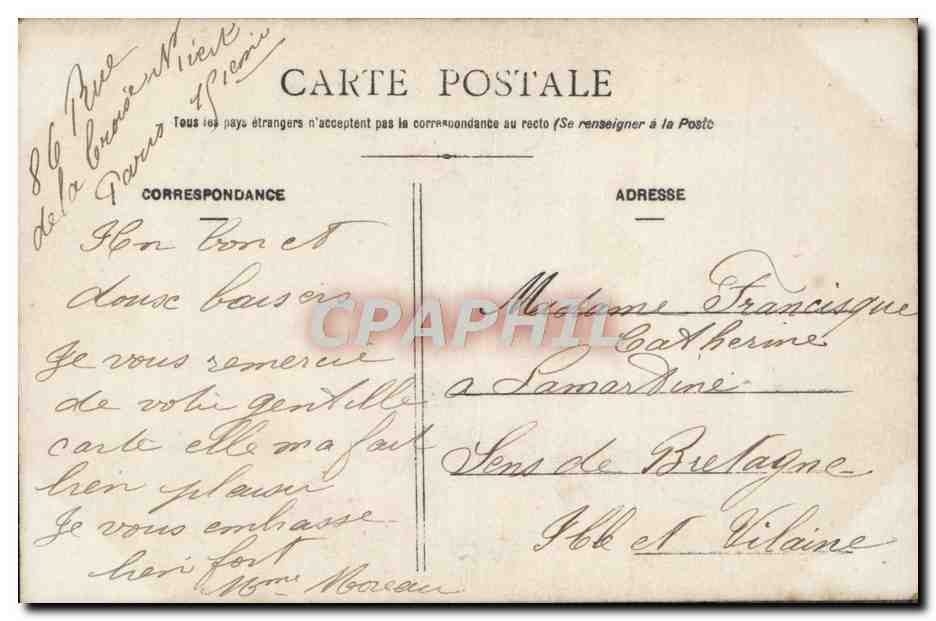 86 Rue
de la Croix Nivert
Paris 15ieme
CARTE POSTALE
Tous les pays étrangers n'acceptent pas la correspondance au recto (Se renseigner à la Poste
CORRESPONDANCE
Un bon et
doux baisers
Je vous remercie
de votre gentille
carte elle m a fait
bien plaisir
Je vous embrasse
bien fort
Mme Moreau
ADRESSE
Madame Francisque
Catherine
a Lamartine
Sens de Bretagne
Ille et Vilaine
CPAPHIL